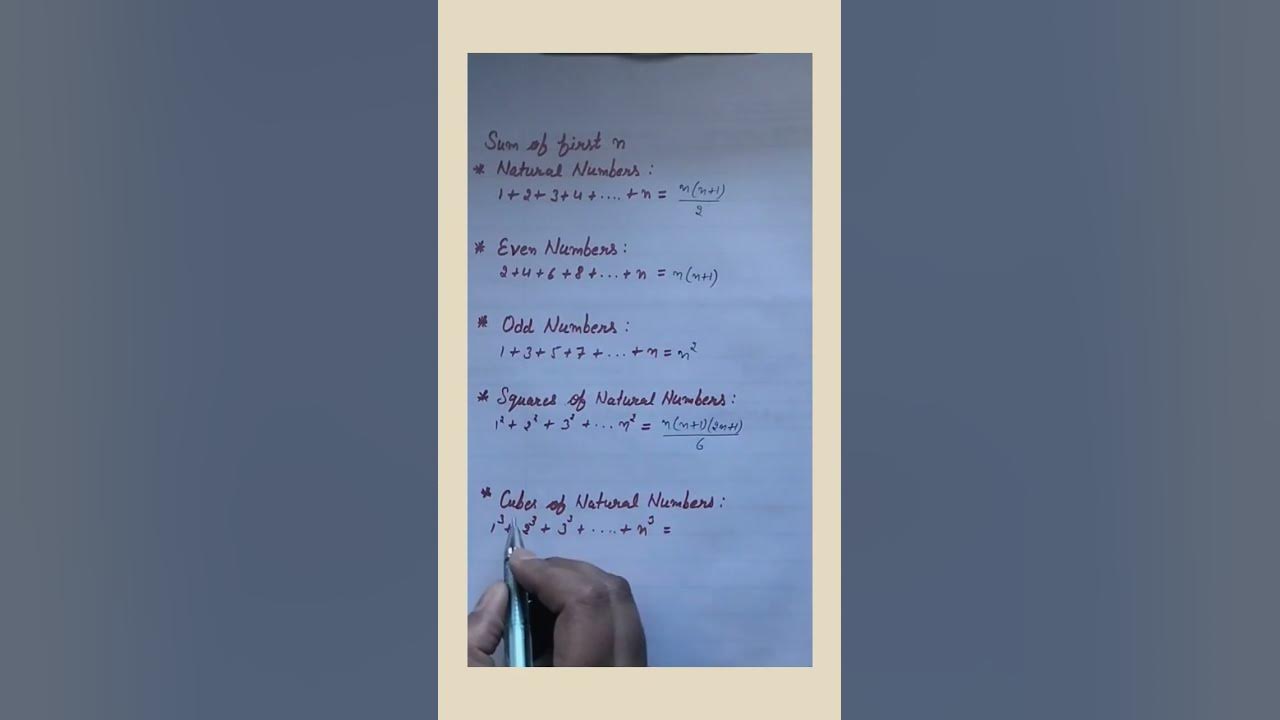 Sum of first n
* Natural Numbers:
1 + 2 + 3 + 4 + .... + n = n(n+1)/2
* Even Numbers:
2 + 4 + 6 + 8 + ... + n = n(n+1)
* Odd Numbers:
1 + 3 + 5 + 7 + ... + n = n²
* Squares of Natural Numbers:
1² + 2² + 3² + ... n² = n(n+1)(2n+1)/6
* Cubes of Natural Numbers:
1³ + 2³ + 3³ + .... + n³ =